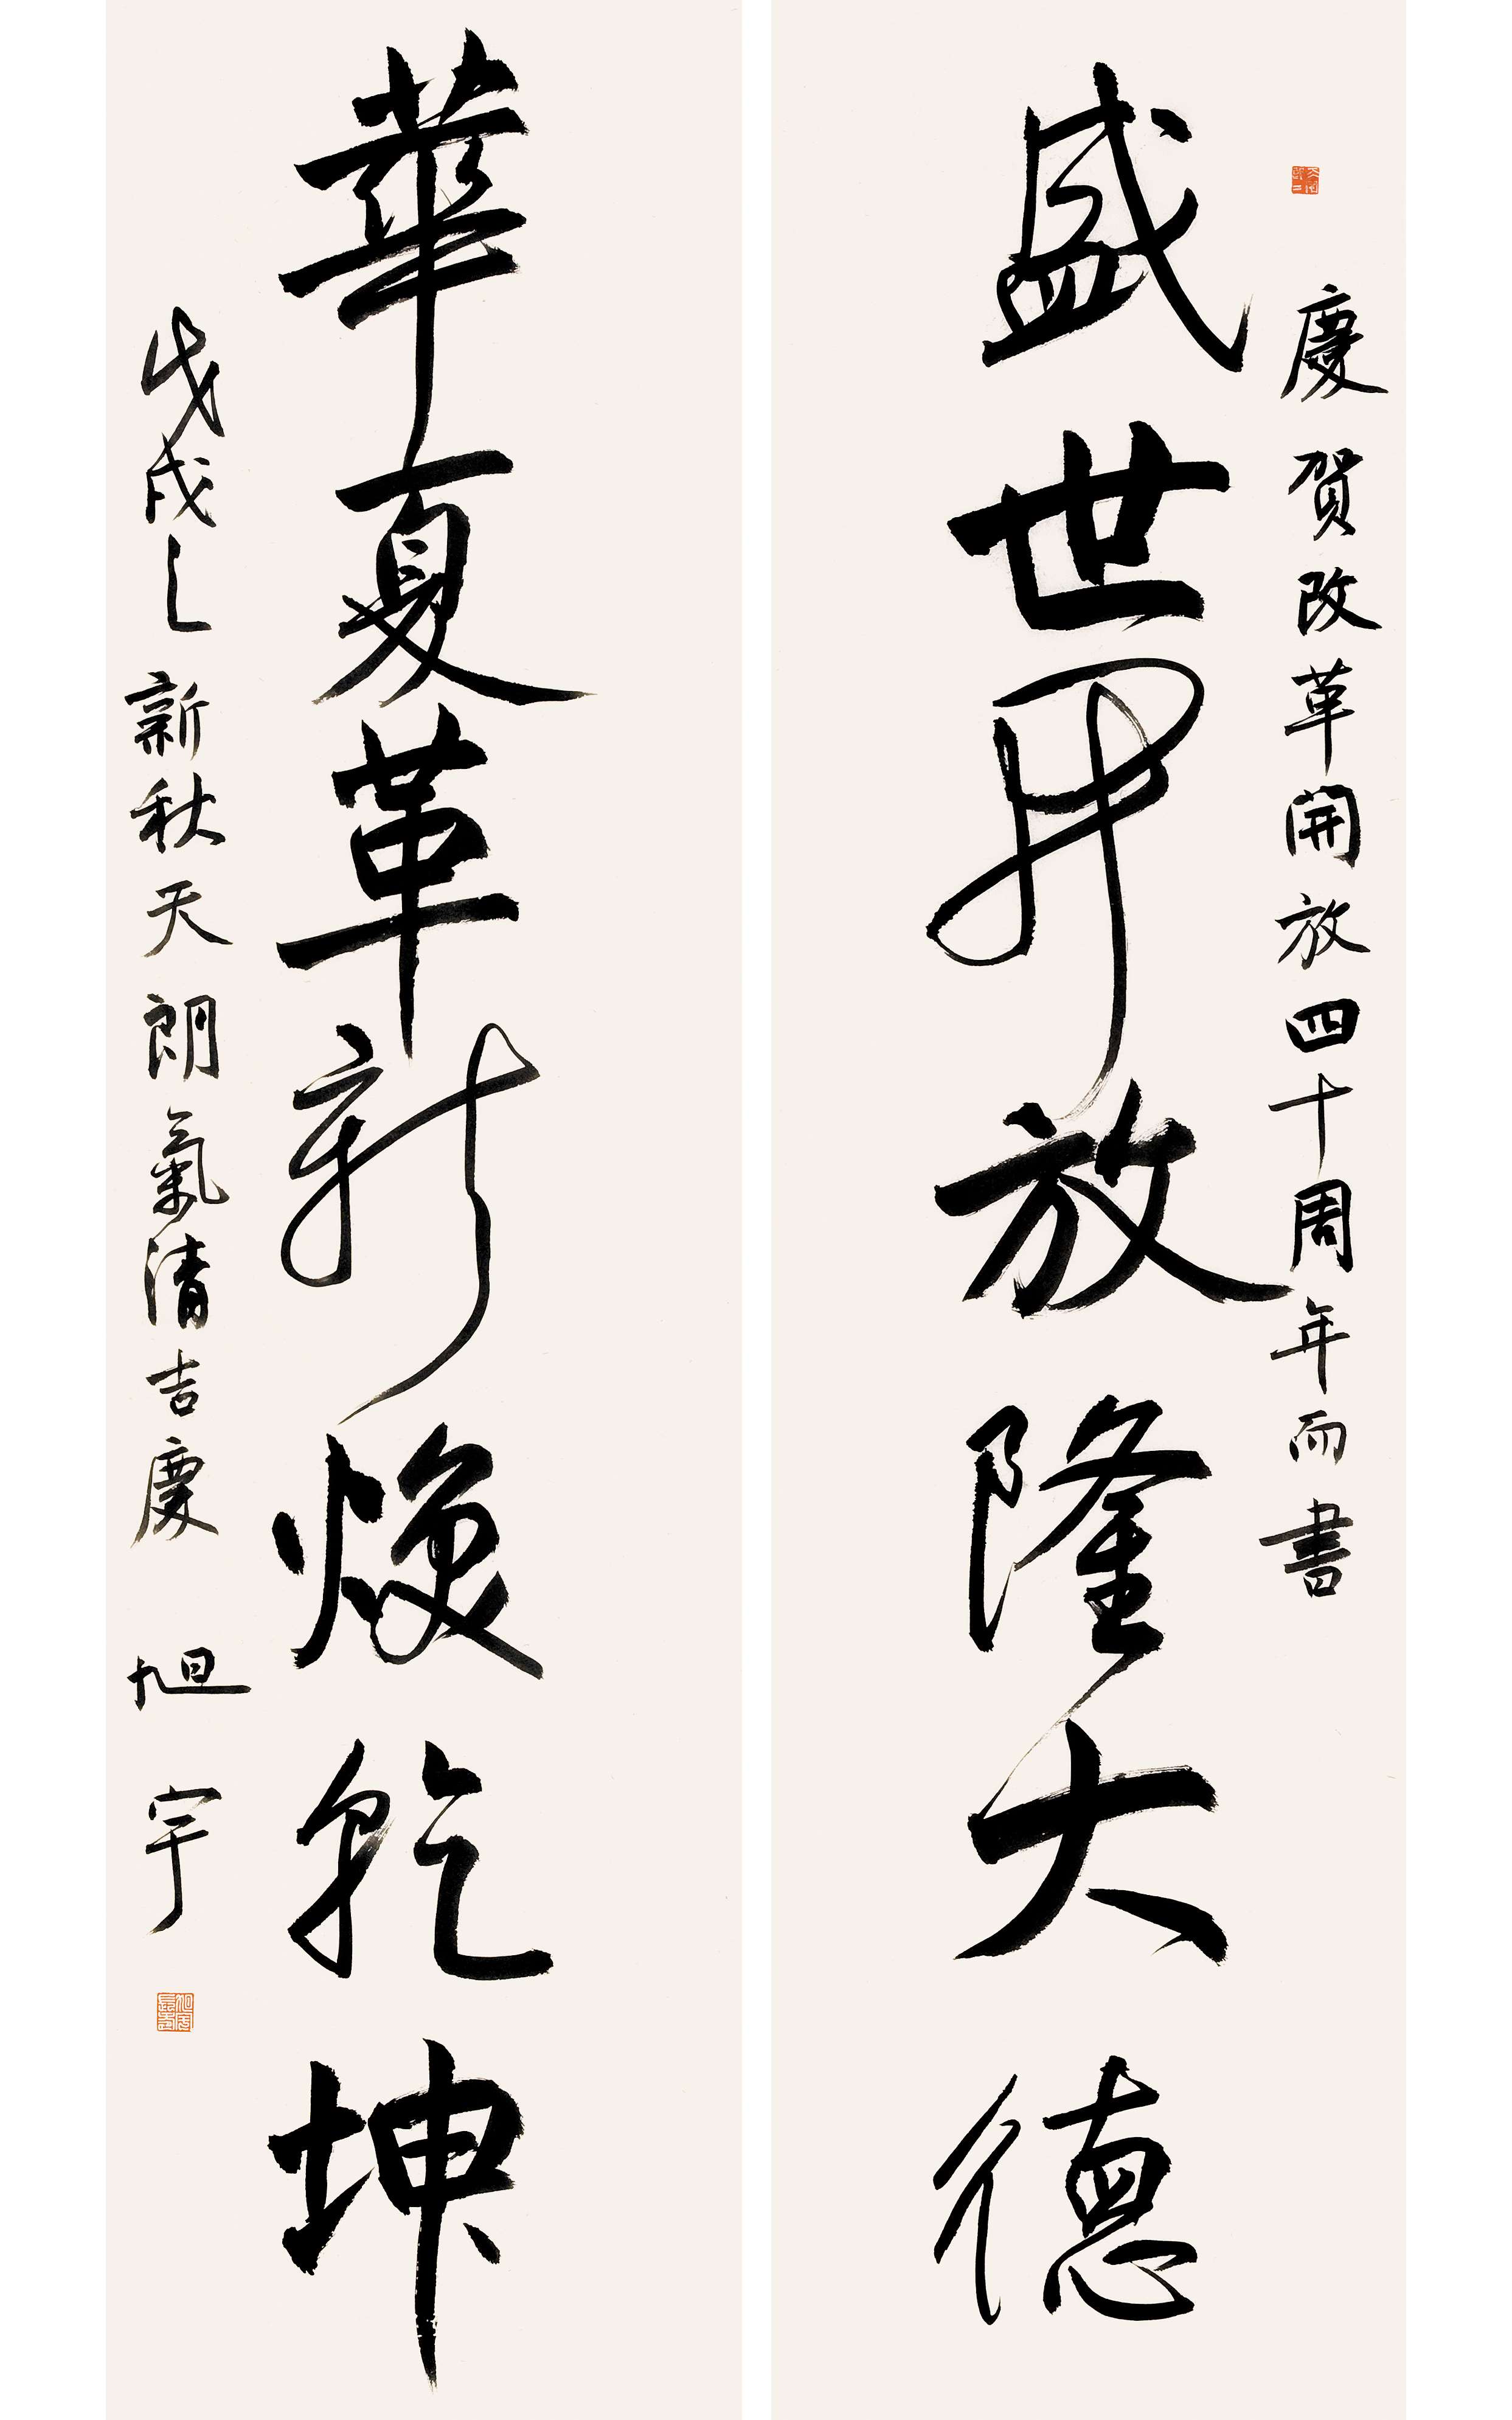 慶賀改革開放四十周年而書
盛世開放隆大德
華夏革新煥乾坤
戊戌之新秋天朗氣清吉慶
旭宇